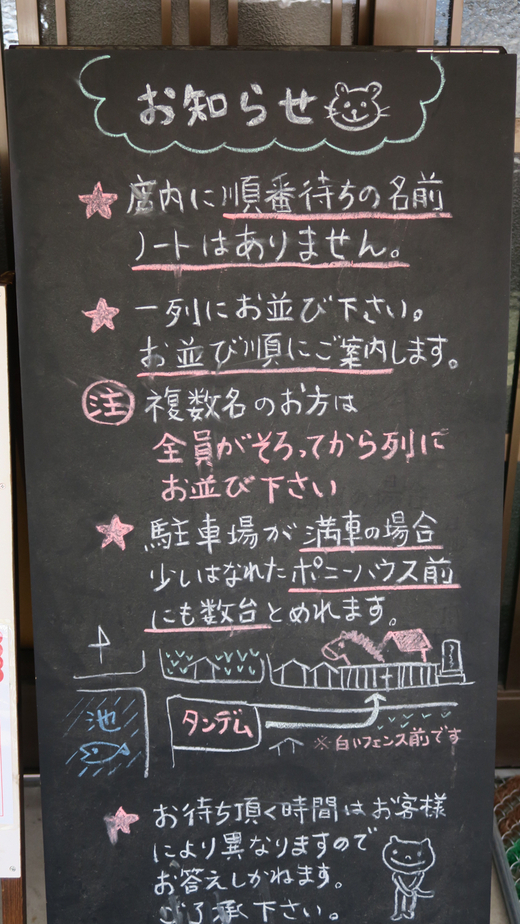 お知らせ
★ 店内に順番待ちの名前
ノートはありません。
★ 一列にお並び下さい。
お並び順にご案内します。
注 複数名のお方は
全員がそろってから列に
お並び下さい
★ 駐車場が満車の場合
少しはなれたポニーハウス前
にも数台とめれます。
池
タンデム
※白いフェンス前です
★ お待ち頂く時間はお客様
により異なりますので
お答えしかねます。
ご了承下さい。